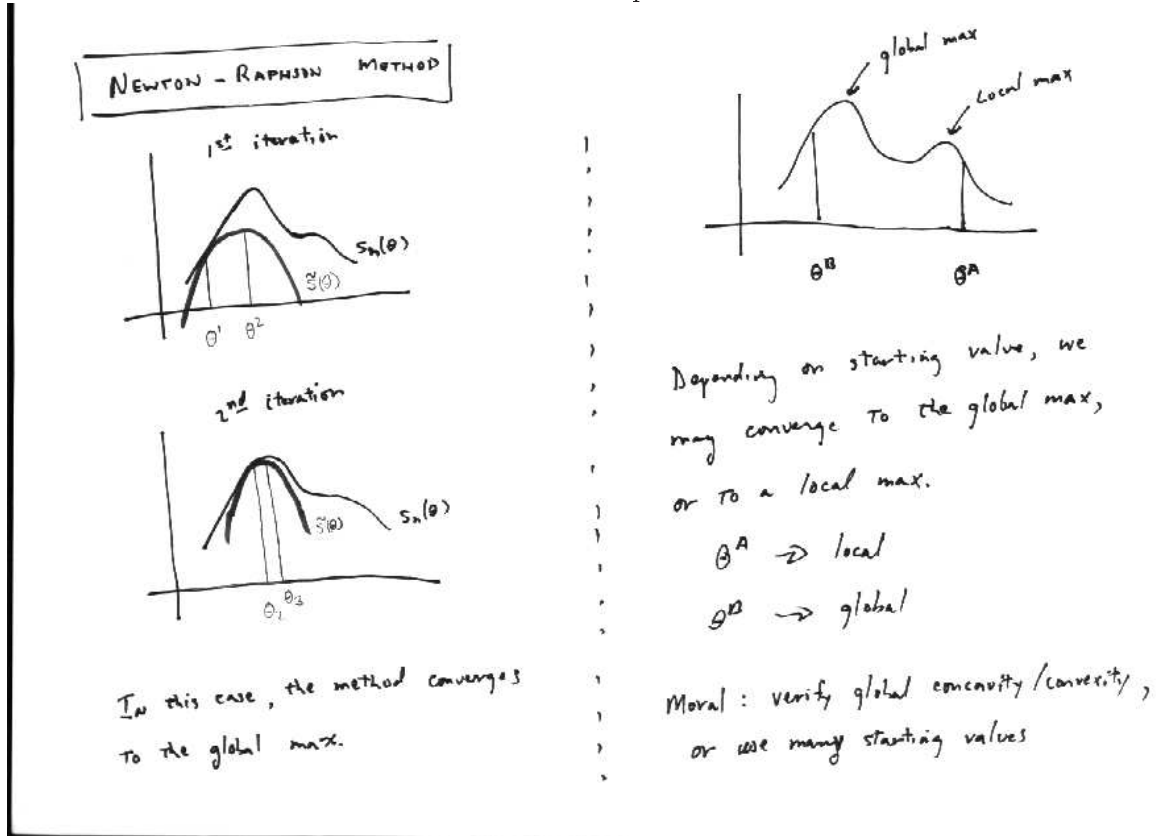 NEWTON - RAPHSON METHOD
1st iteration
sn(θ)
s̃(θ)
θ¹ θ²
2nd iteration
sn(θ)
s̃(θ)
θ₂ θ₃
In this case, the method converges
to the global max.
global max
Local max
θᴮ θᴬ
Depending on starting value, we
may converge to the global max,
or to a local max.
θᴬ → local
θᴮ → global
Moral: verify global concavity/convexity,
or use many starting values